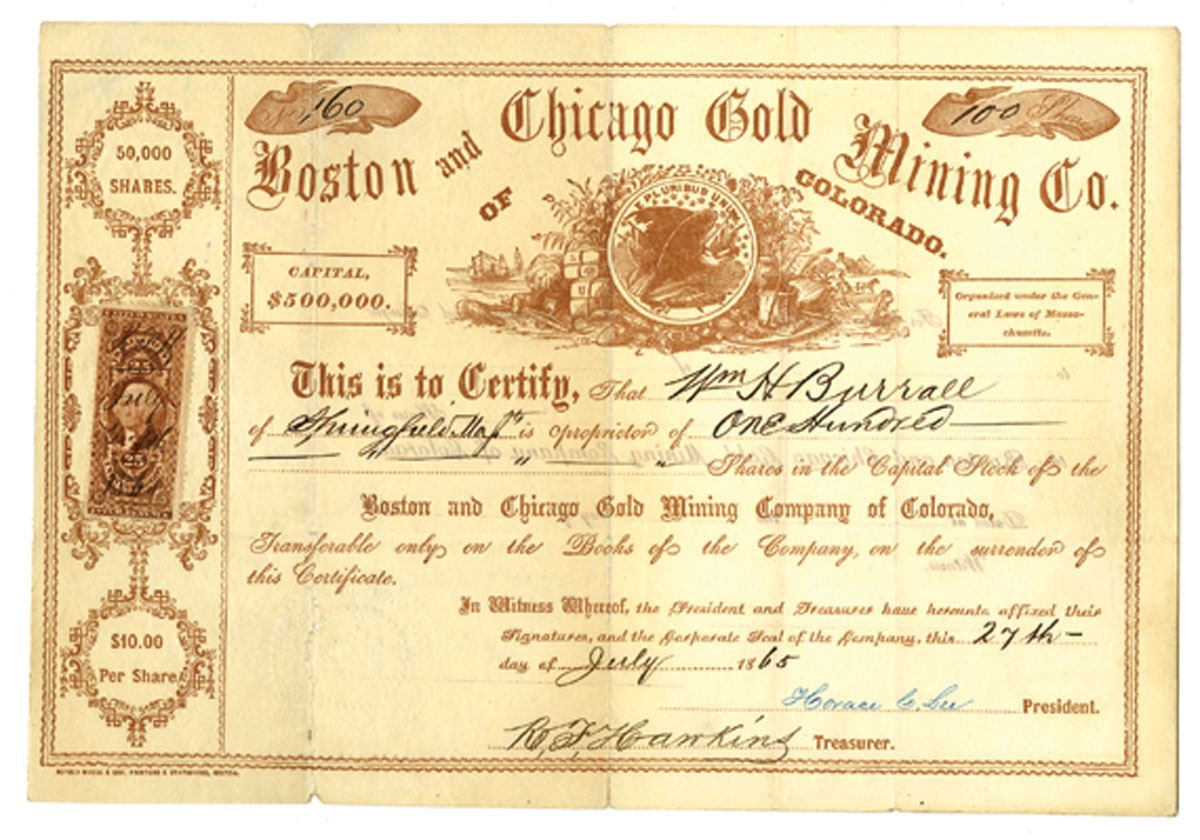 No. 160
100 Shares
Boston and Chicago Gold Mining Co.
OF COLORADO.
E PLURIBUS UNUM
50,000
SHARES.
CAPITAL,
$500,000.
Organized under the Gen-
eral Laws of Massa-
chusetts.
This is to Certify, That Wm H Burrall
of Springfield Mass is proprietor of One Hundred
Shares in the Capital Stock of the
Boston and Chicago Gold Mining Company of Colorado,
Transferable only on the Books of the Company, on the surrender of
this Certificate.
In Witness Whereof, the President and Treasurer have hereunto affixed their
Signatures, and the Corporate Seal of the Company, this 27th
day of July 1865
$10.00
Per Share
Horace C. Lee President.
R. F. Hawkins Treasurer.